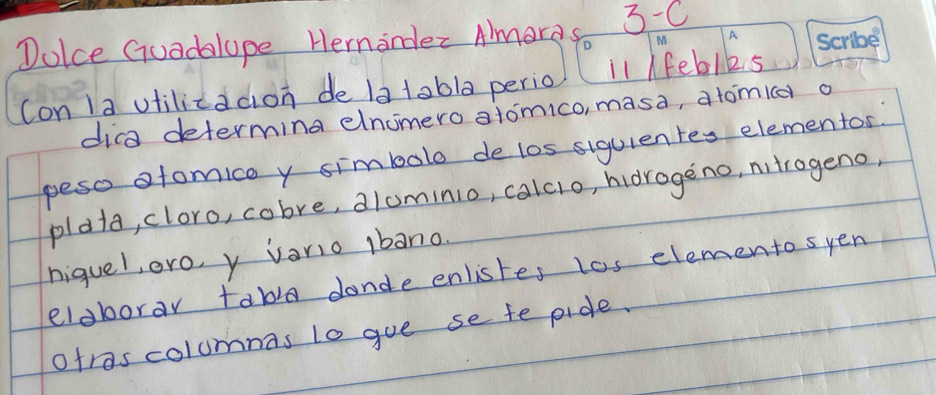 3-C
Dulce Guadalupe Hernández Almarás
D M A
11 / feb / 25
Scribe
Con la utilización de la tabla perio
dica determina elnúmero atómico, masa, atómica o
peso atomico y símbolo de los siguientes elementos.
plata, cloro, cobre, aluminio, calcio, hidrogéno, nitrogeno,
niquel, oro, y vario ibano.
elaborar tabla donde enlistes los elementos yen
otras columnas lo que se te pide.